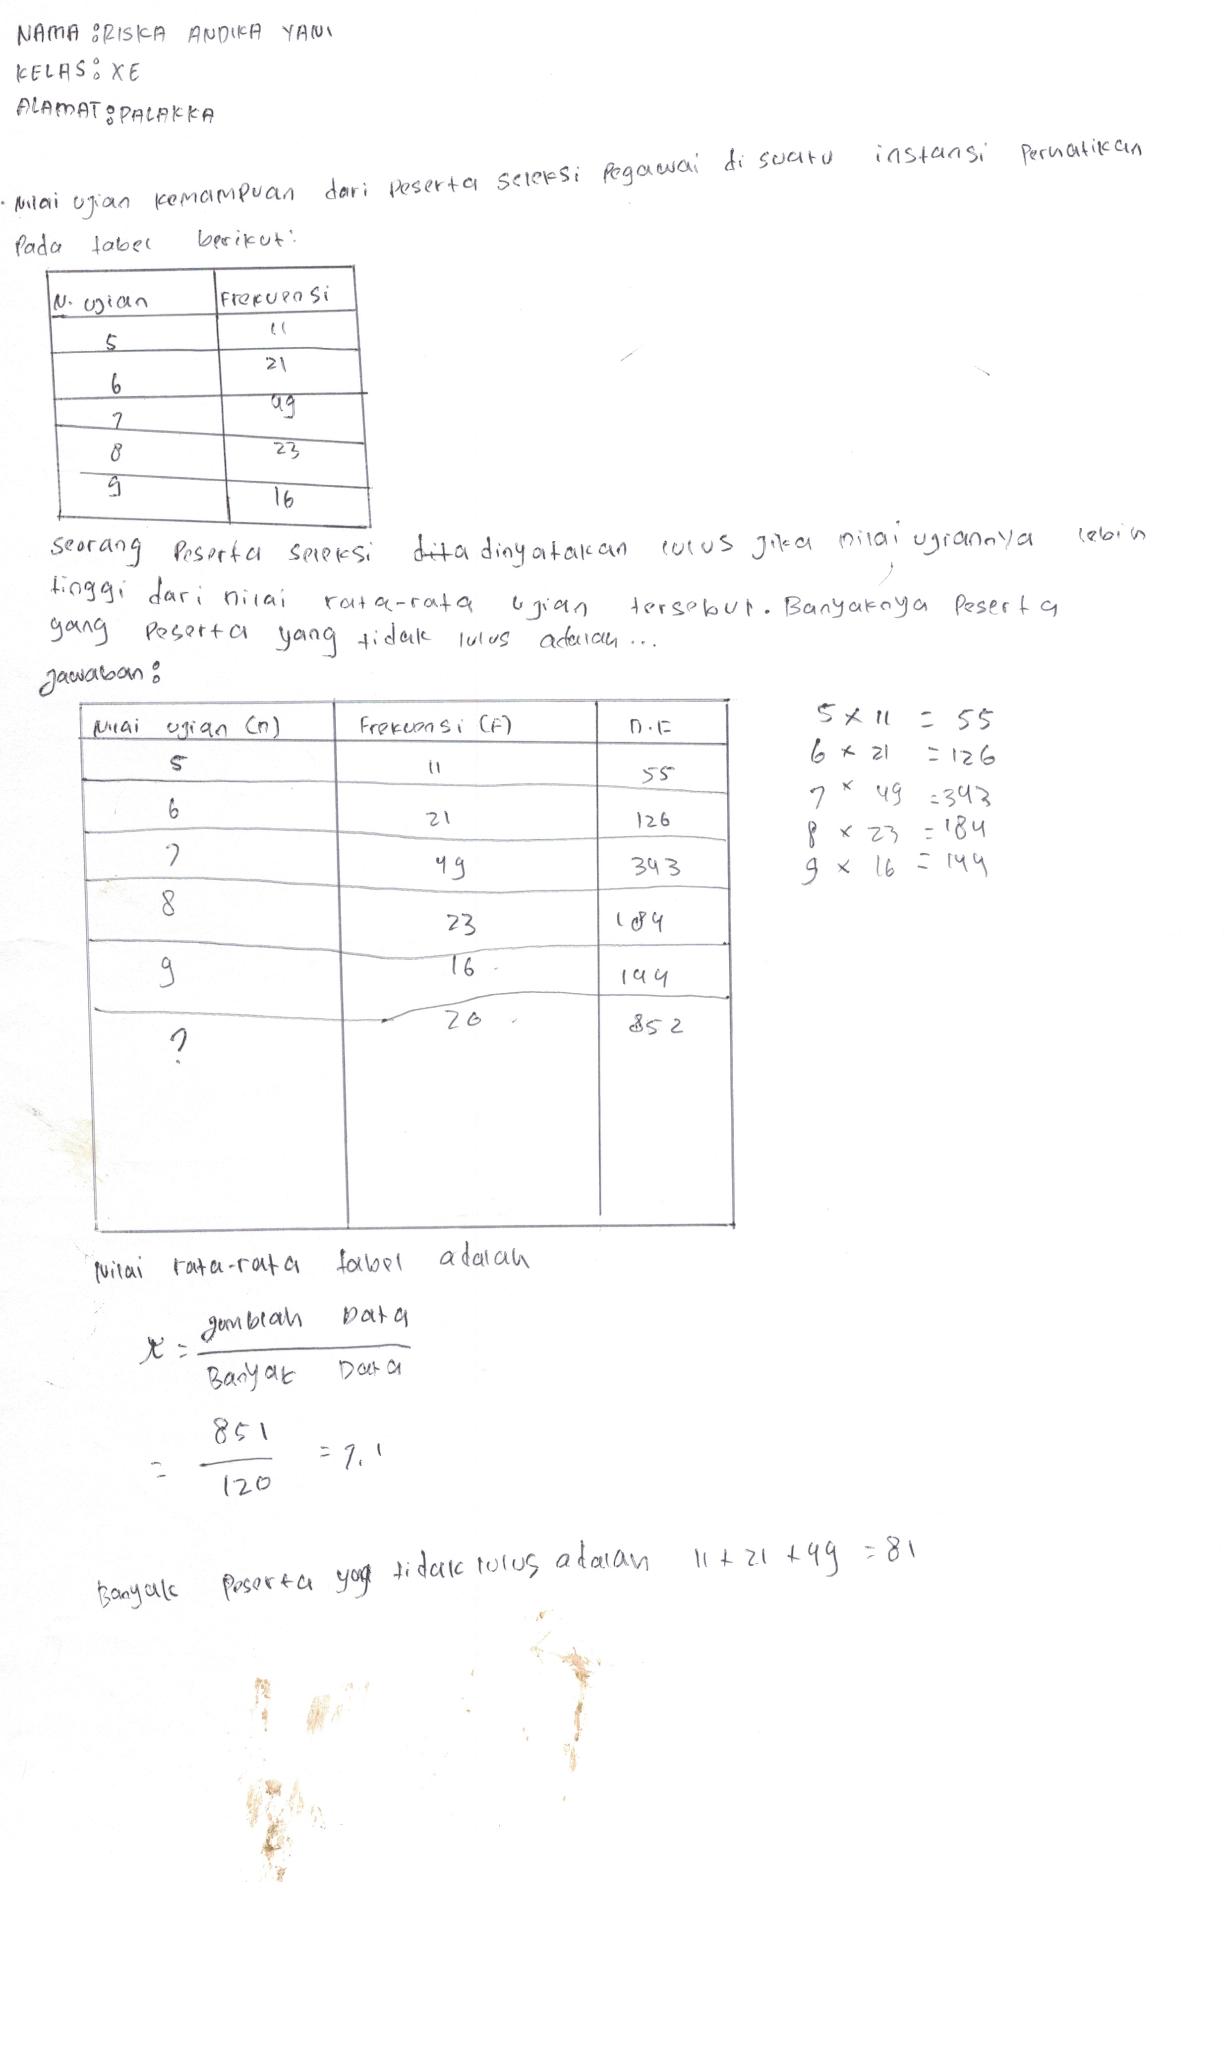 NAMA : RISKA ANDIKA YANI
KELAS : XE
ALAMAT : PALAKKA
. Nilai ujian kemampuan dari peserta seleksi Pegawai di suatu instansi Perhatikan
Pada tabel berikut:
N. ujian Frekuensi
5 11
6 21
7 49
8 23
9 16
seorang Peserta seleksi dita dinyatakan lulus jika nilai ujiannya lebih
tinggi dari nilai rata-rata ujian tersebut. Banyaknya Peserta
yang Peserta yang tidak lulus adalah ...
jawaban :
Nilai ujian (n) Frekuensi (F) n.F
5 11 55
6 21 126
7 49 343
8 23 184
9 16 144
? 20 852
5 x 11 = 55
6 x 21 = 126
7 x 49 = 343
8 x 23 = 184
9 x 16 = 144
Nilai rata-rata tabel adalah
x = jumblah Data
Banyak Data
= 851
120
= 7,1
Banyak Peserta yag tidak lulus adalah 11 + 21 + 49 = 81